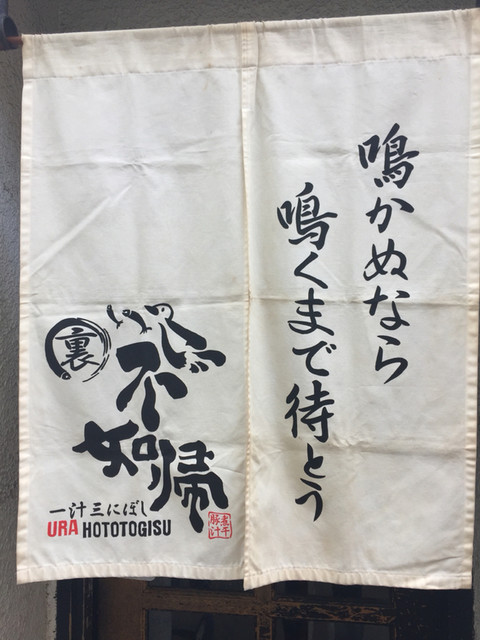 鳴かぬなら
鳴くまで待とう
裏
不
如帰
一汁三にぼし
URA HOTOTOGISU
煮干
豚汁